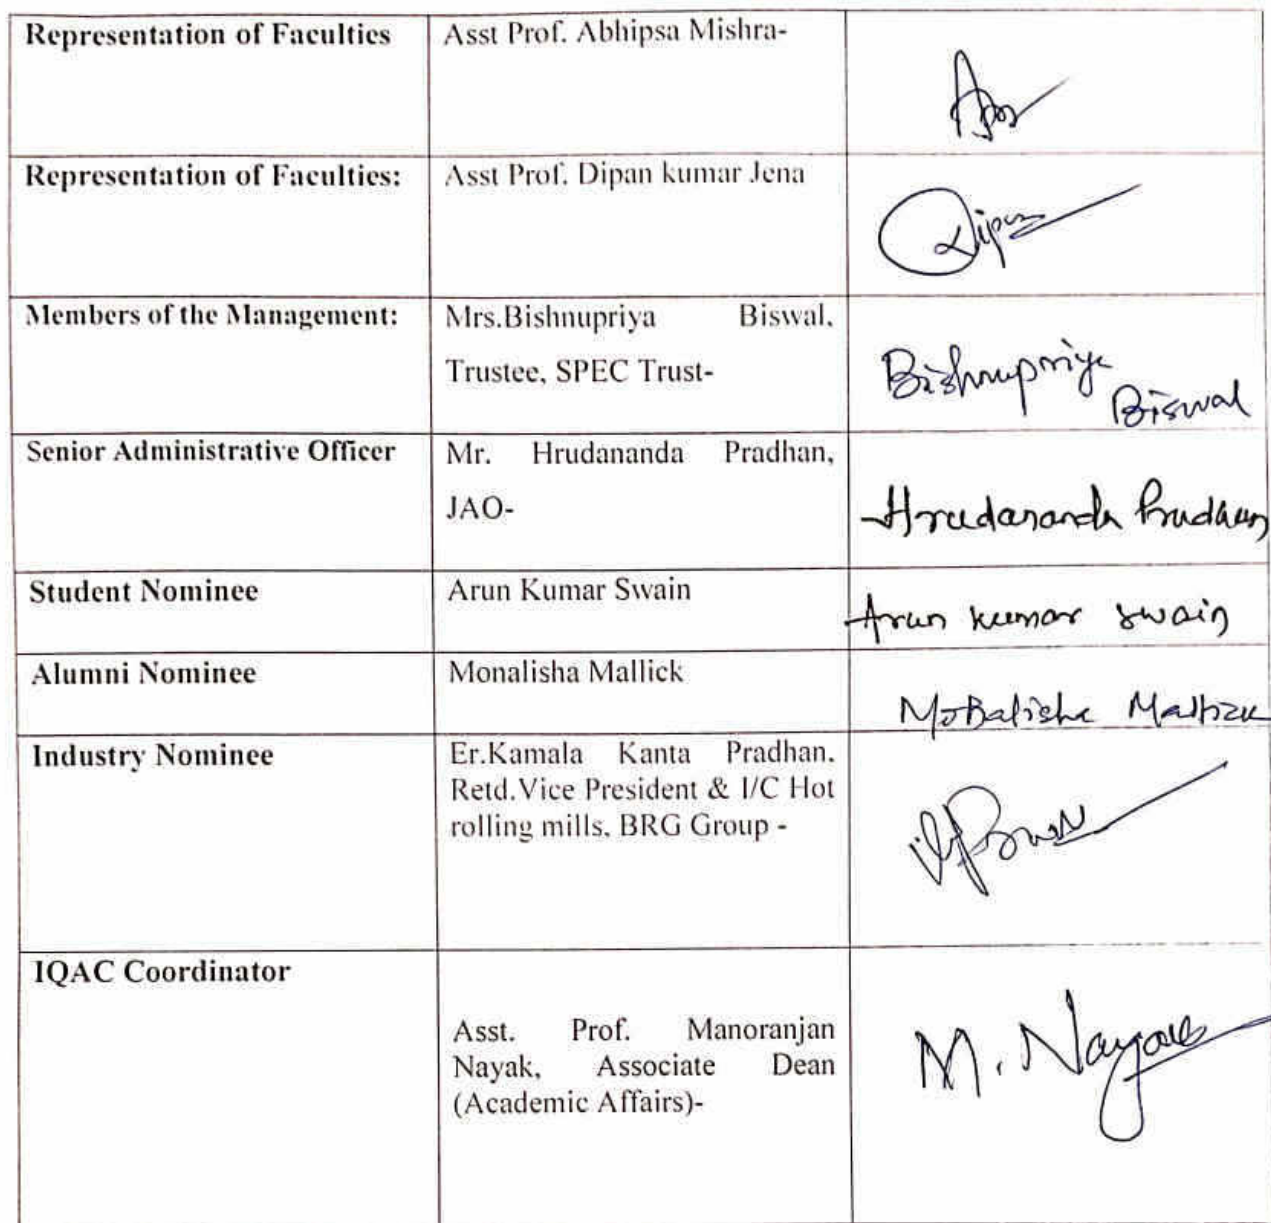 Representation of Faculties
Asst Prof. Abhipsa Mishra-
Representation of Faculties:
Asst Prof. Dipan kumar Jena
Dipan
Members of the Management:
Mrs.Bishnupriya Biswal,
Trustee, SPEC Trust-
Bishnupriya
Biswal
Senior Administrative Officer
Mr. Hrudananda Pradhan,
JAO-
Hrudananda Pradhan
Student Nominee
Arun Kumar Swain
Arun kumar swain
Alumni Nominee
Monalisha Mallick
Monalisha Mallick
Industry Nominee
Er.Kamala Kanta Pradhan.
Retd.Vice President & I/C Hot
rolling mills, BRG Group -
IQAC Coordinator
Asst. Prof. Manoranjan
Nayak, Associate Dean
(Academic Affairs)-
M. Nayak